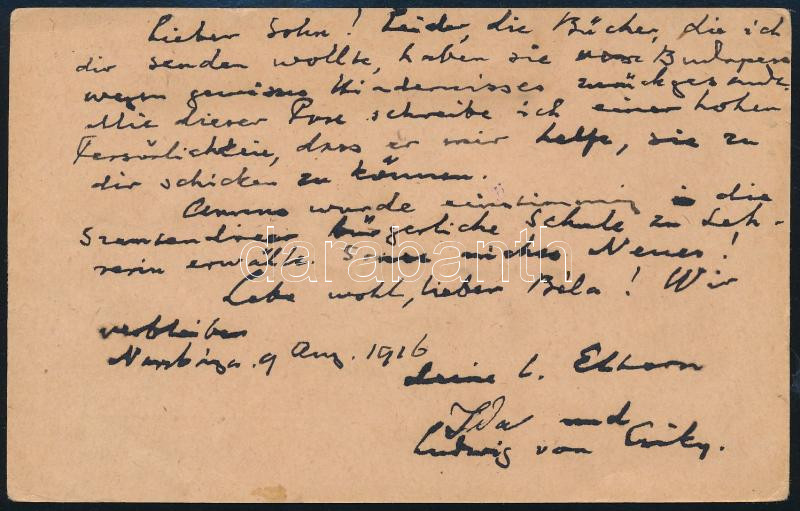 Lieber Sohn! Leider, die Bücher, die ich
dir senden wollte, haben sie von Budapest
wegen gewisses Hindernisses zurückgesandt.
Mit dieser Post schreibe ich einer hohen
Persönlichkeit, dass er mir helfe, sie zu
dir schicken zu können.
wurde einstimmig in die
bürgerliche Schule zu Leh-
rerin erwählt. Sonst nichts Neues!
Lebe wohl, lieber Béla! Wir
verbleiben
9 Aug. 1916
deine l. Eltern
Ida und
Ludwig von
darabanth